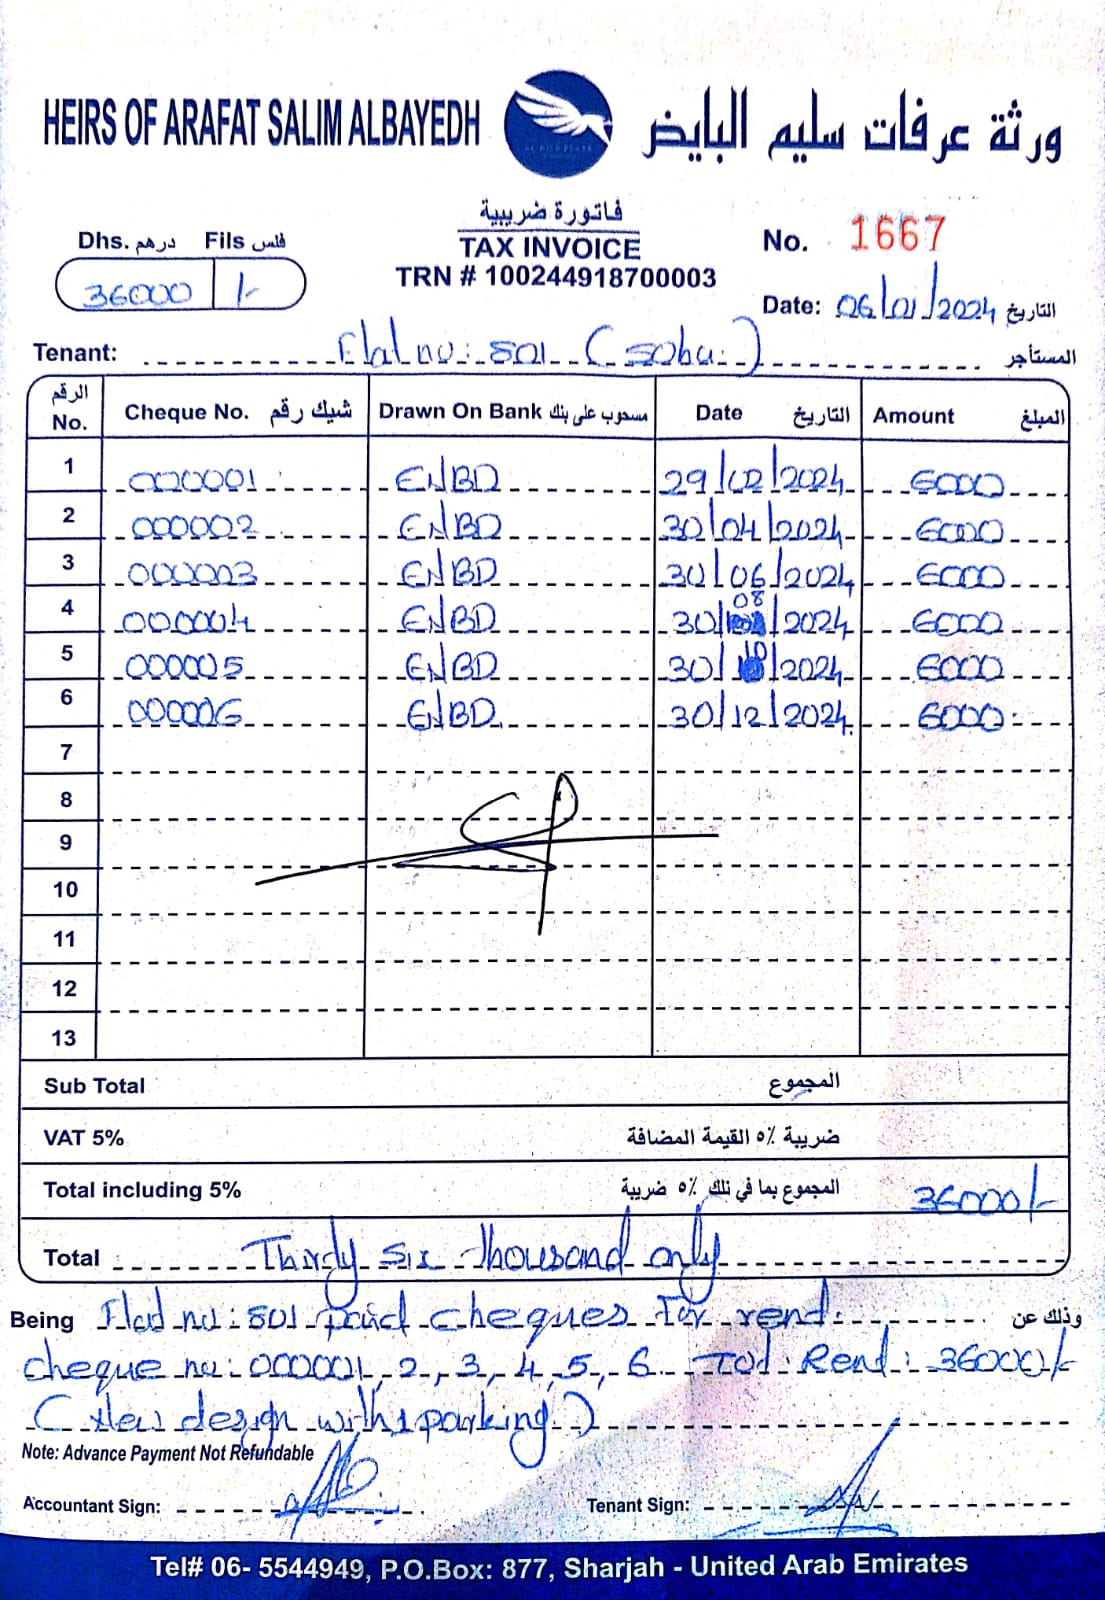 HEIRS OF ARAFAT SALIM ALBAYEDH
ورثة عرفات سليم البايض
فاتورة ضريبية
TAX INVOICE
TRN # 100244918700003
Dhs. درهم Fils فلس
36000 /-
No. 1667
Date: 06/01/2024 التاريخ
Tenant: Flat no: 501 (Soba.) المستأجر
الرقم No. Cheque No. شيك رقم Drawn On Bank مسحوب على بنك Date التاريخ Amount المبلغ
1 000001 ENBD 29/02/2024 6000
2 000002 ENBD 30/04/2024 6000
3 000003 ENBD 30/06/2024 6000
4 000004 ENBD 30/08/2024 6000
5 000005 ENBD 30/10/2024 6000
6 000006 ENBD 30/12/2024 6000
7
8
9
10
11
12
13
Sub Total المجموع
VAT 5% ضريبة ٥٪ القيمة المضافة
Total including 5% المجموع بما في ذلك ٥٪ ضريبة 36000/-
Total Thirdy six thousand only
Being Flad no: 501 paid cheques for rend. وذلك عن
cheque no: 000001, 2, 3, 4, 5, 6 Tot. Rend: 36000/-
(New design with 1 parking)
Note: Advance Payment Not Refundable
Accountant Sign: Tenant Sign:
Tel# 06- 5544949, P.O.Box: 877, Sharjah - United Arab Emirates